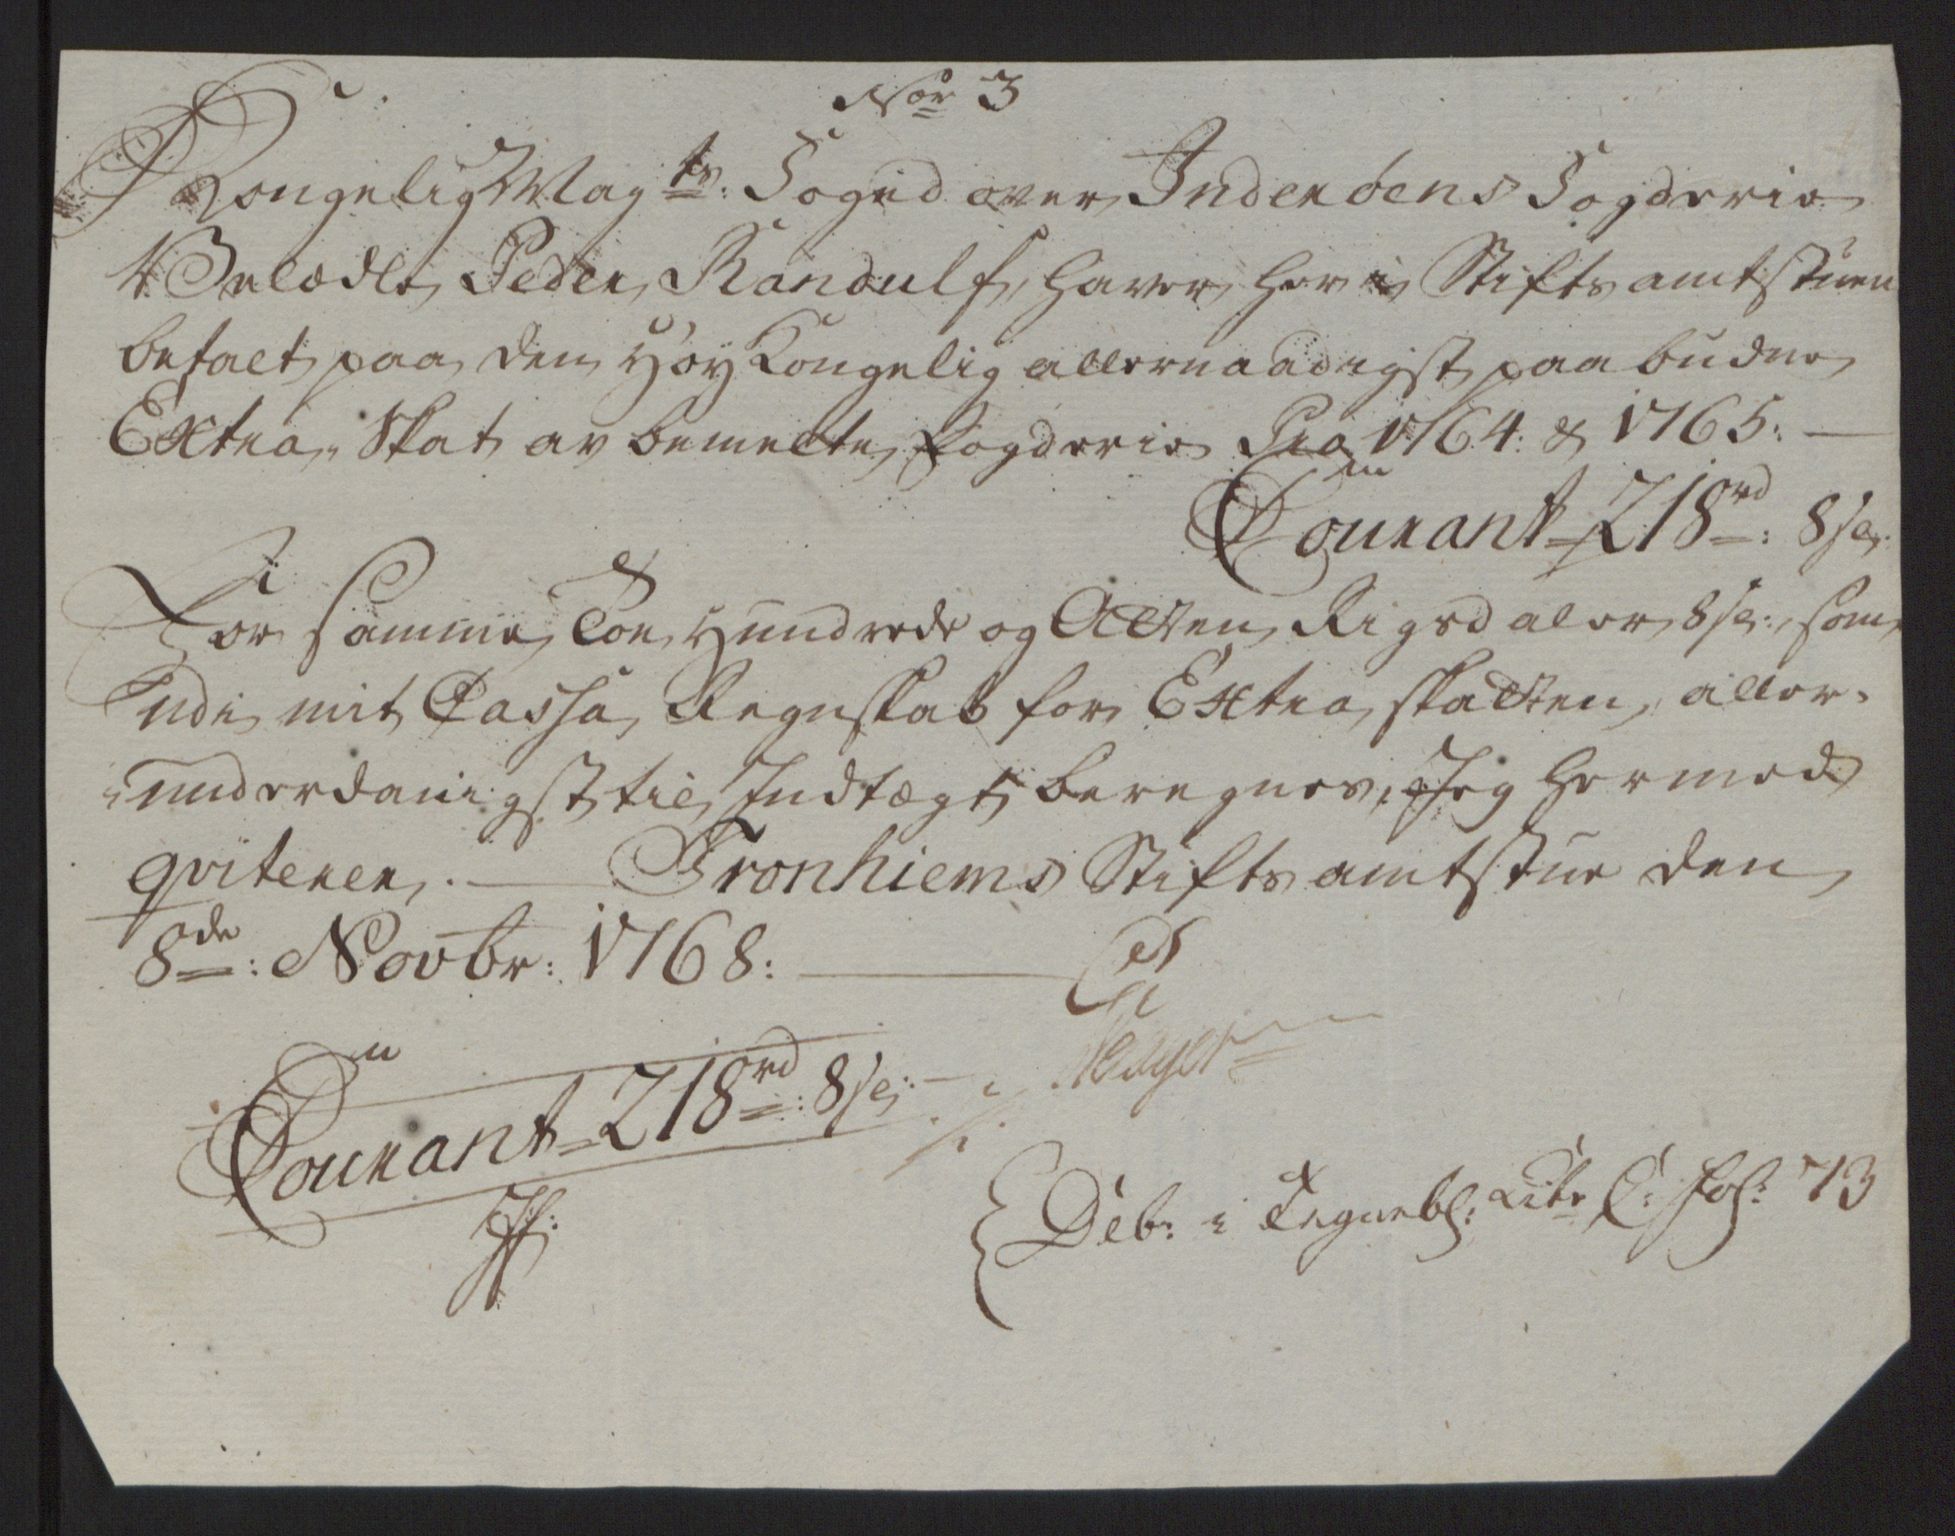 Nor 3
Kongelig Mayts: Foged over Inderöens Fogderie
Velædle Peder Randulf, haver her i Stiftsamtstuen
betalt paa den Höy Kongelig allernaadigst paabudne
Extra Skat av bemelte Fogderie Pro 1764: & 1765: —
Courant 218rd: 8 s:
For samme Toe Hundrede og Atten Rigsdaler 8 s:, som
udi mit Cassa Regnskab for Extra skatten, aller-
underdanigst til Indtægt beregnes, Jeg hermed
qviterer. — Tronhiems Stiftsamtstue den
8de: Novbr: 1768: —
Courant 218rd: 8 s: —
Deb: i Regnebs: Litr C: fol: 73